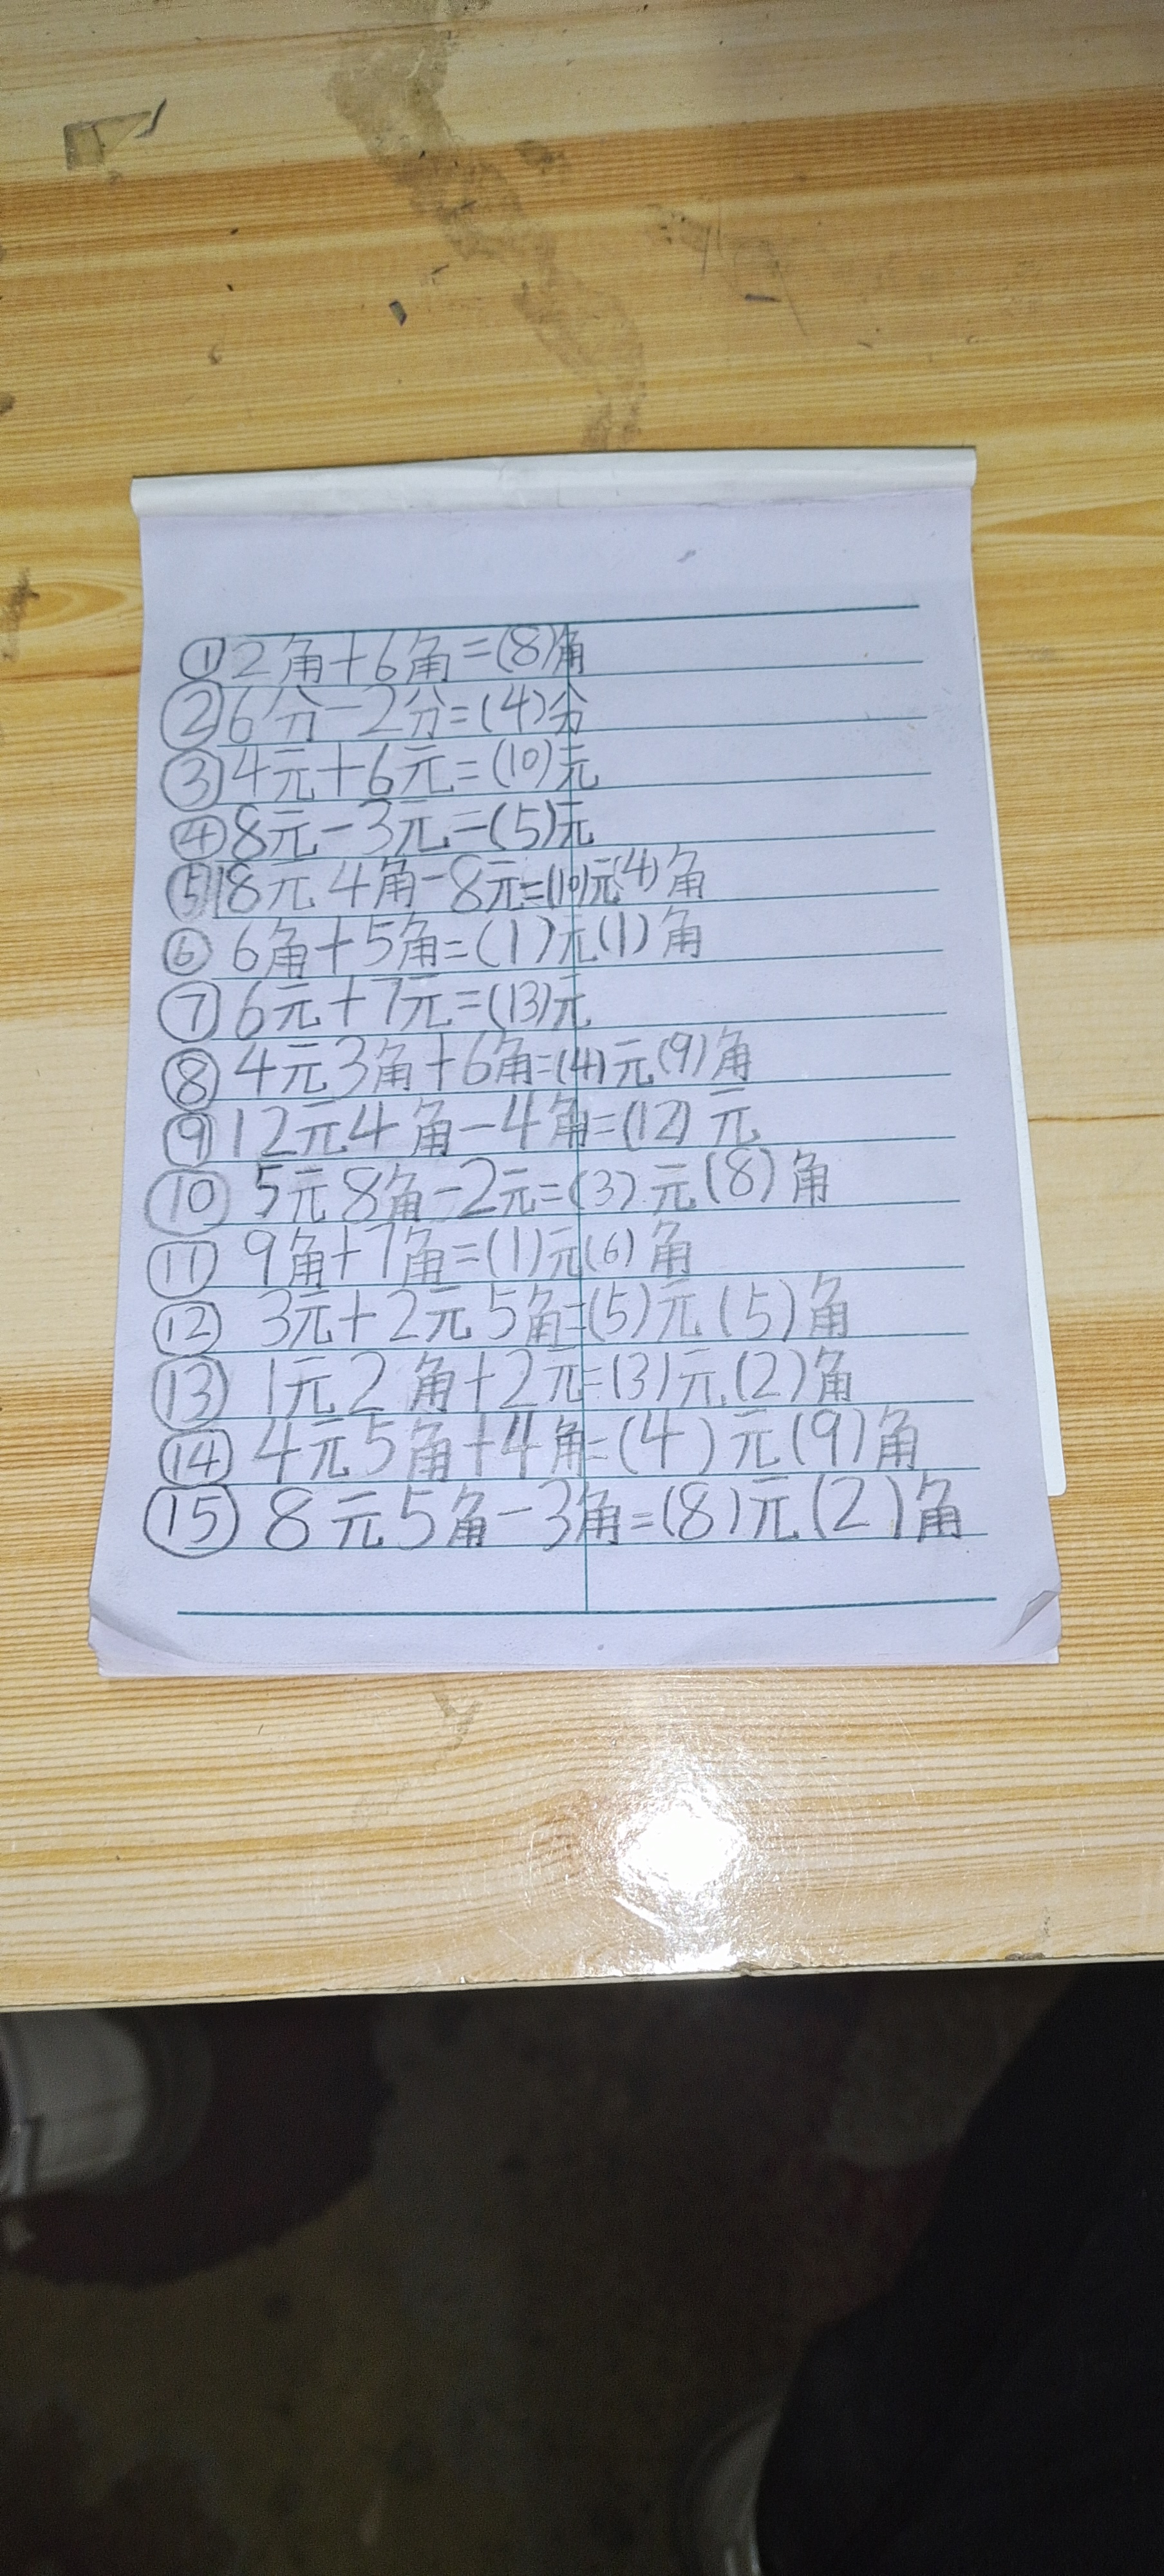 ①2角+6角=(8)角
②6分-2分=(4)分
③4元+6元=(10)元
④8元-3元=(5)元
⑤18元4角-8元=(10)元(4)角
⑥6角+5角=(1)元(1)角
⑦6元+7元=(13)元
⑧4元3角+6角=(4)元(9)角
⑨12元4角-4角=(12)元
⑩5元8角-2元=(3)元(8)角
⑪9角+7角=(1)元(6)角
⑫3元+2元5角=(5)元(5)角
⑬1元2角+2元=(3)元(2)角
⑭4元5角+4角=(4)元(9)角
⑮8元5角-3角=(8)元(2)角